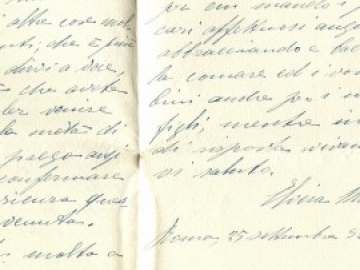 altre cose mol
che è più
dirvi a voce,
che avete
venire
la metà di
prego anzi
confermare
sicura que
venuta.
molto a
per cui mando i
cari affettuosi augu
abbracciando e
la comare ed i vo
bini anche per i m
figli, mentre in
di risposta vivam
vi saluto.
Elvira
Roma, 25 settembre